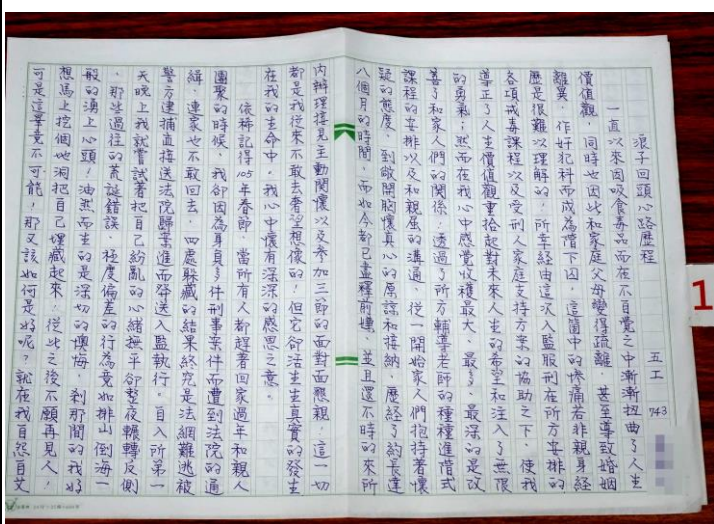 浪子回頭心路歷程
五工 743
一直以來因吸食毒品而在不自覺之中漸漸扭曲了人生
價值觀,同時也因此和家庭父母變得疏離、甚至導致婚姻
離異,作奸犯科而成為階下囚,這箇中的慘痛若非親身經
歷是很難以理解的,所幸經由這次入監服刑在所方安排的
各項戒毒課程以及受刑人家庭支持方案的協助之下,使我
導正了人生價值觀重拾起對未來人生的希望和注入了無限
的勇氣;然而在我心中感覺收穫最大、最多、最深的是改
善了和家人們的關係,透過了所方輔導老師的種種進階式
課程的安排以及和親屬的溝通,從一開始家人們抱持著懷
疑的態度,到敞開胸懷真心的原諒和接納,歷經了約長達
八個月的時間,而如今都已盡釋前嫌,並且還不時的來所
內辦理接見主動關懷以及參加三節的面對面懇親,這一切
都是我從來不敢去奢望想像的!但它卻活生生真實的發生
在我的生命中,我心中懷有深深的感恩之意。
依稀記得105年春節,當所有人都趕著回家過年和親人
團聚的時候,我卻因為身負多件刑事案件而遭到法院的通
緝,連家也不敢回去,四處躲藏的結果終究是法網難逃被
警方逮捕直接送法院歸案進而發送入監執行。自入所第一
天晚上我就嘗試著把自己紛亂的心緒撫平卻整夜輾轉反側
,那些過往的荒誕錯誤、極度偏差的行為竟如排山倒海一
般的湧上心頭!油然而生的是深切的懊悔,剎那間的我好
想馬上挖個地洞把自己埋藏起來,從此之後不願再見人!
可是這畢竟不可能!那又該如何是好呢?就在我自怨自艾
1